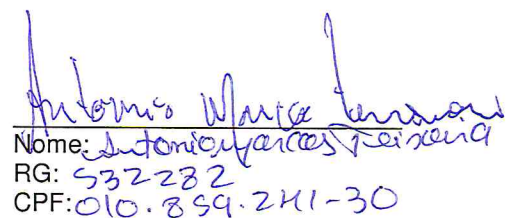 Antonio Marcos
Nome: Antonio Marcos Teixeira
RG: 532282
CPF: 010.859.241-30